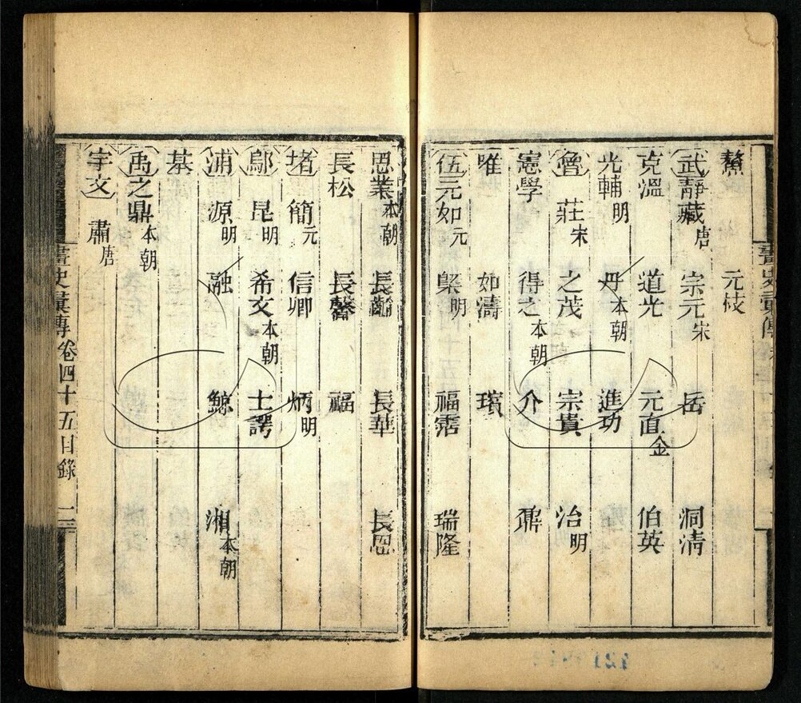 鰲 元枝
武靜藏唐 宗元宋 岳 洞清
克溫 道光 元直金 伯英
光輔明 丹本朝 進功
曾 莊宋 之茂 宗貴 治明
憲學 得之本朝 介 鼐
唯 如濤 璸
伍元如元 槩明 福霱 瑞隆
思業本朝 長齡 長華 長恩
長松 長馨 福
堵 簡元 信卿 炳明
鄔 昆明 希文本朝 士諤
浦 源明 融 鯨 湘本朝
棊
禹之鼎本朝
宇文 肅唐
畫史彙傳 卷四十五目錄 二